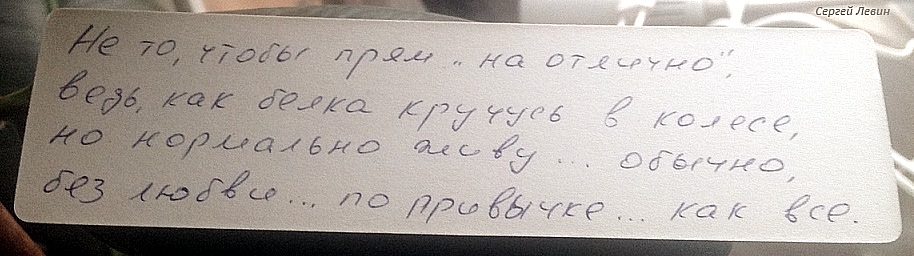 Сергей Левин
Не то, чтобы прям „на отлично",
ведь, как белка кручусь в колесе,
но нормально живу... обычно,
без любви... по привычке... как все.